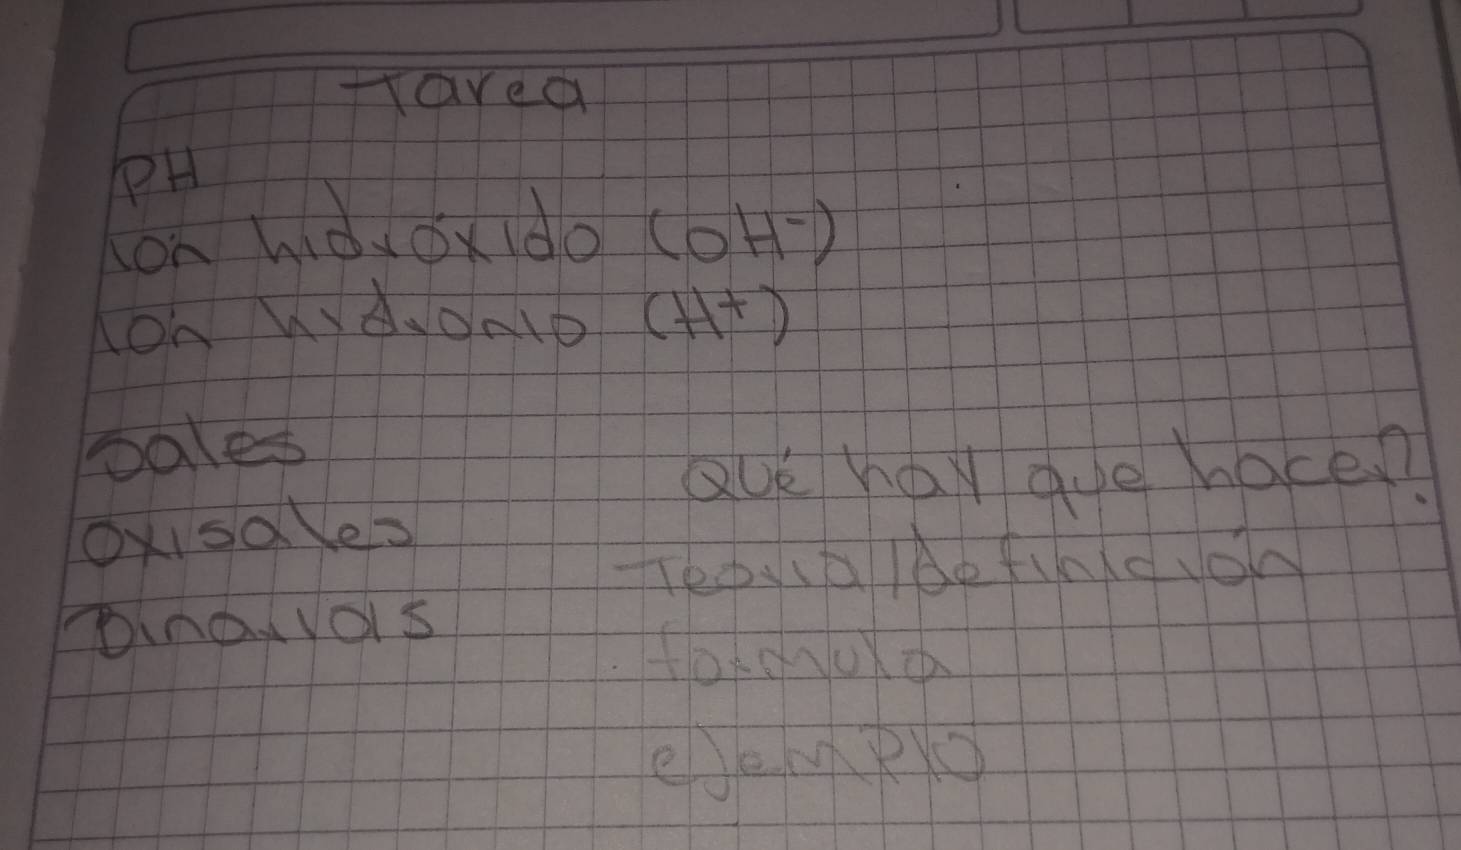 Tarea
PH
ion hidróxido (OH-)
ion hidronio (H+)
Sales
oxisales
binarias
Qué hay que hacer?
Teoria/definición
formula
ejemplo